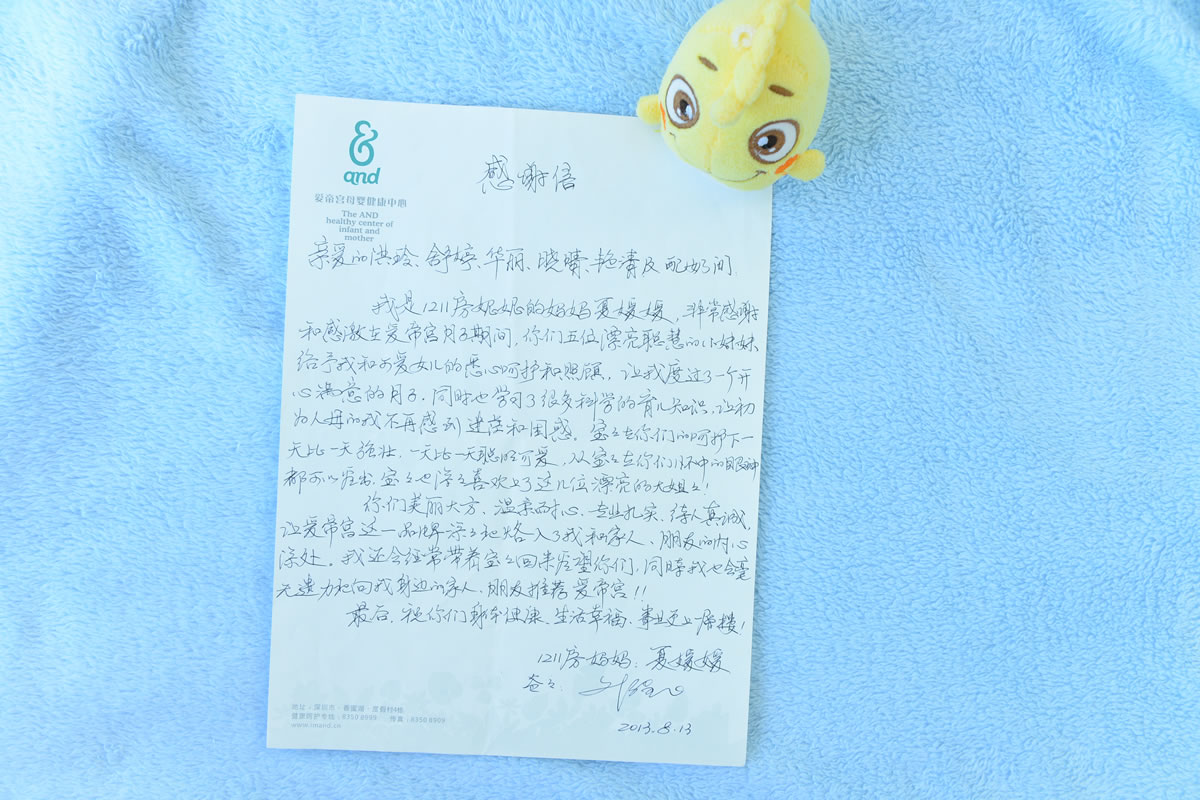 and
爱帝宫母婴健康中心
The AND
healthy center of
infant and
mother
感谢信
亲爱的洪玲、舒婷、华丽、晓晴、艳清及配奶间
我是1211房妮妮的妈妈夏媛媛,非常感谢
和感激在爱帝宫月子期间,你们五位漂亮聪慧的小妹妹
给予我和可爱女儿的悉心呵护和照顾,让我度过了一个开
心满意的月子,同时也学习了很多科学的育儿知识,让初
为人母的我不再感到迷茫和困惑。宝宝在你们的呵护下一
天比一天强壮,一天比一天聪明可爱,从宝宝在你们怀中的眼神
都可以看出,宝宝也深深喜欢上了这几位漂亮的大姐姐!
你们美丽大方、温柔耐心、专业扎实、待人真诚,
让爱帝宫这一品牌深深地烙入了我和家人、朋友的内心
深处。我还会经常带着宝宝回来看望你们,同时我也会毫
无遗力地向我身边的家人、朋友推荐爱帝宫!!
最后,祝你们身体健康、生活幸福、事业更上一层楼!
1211房妈妈:夏媛媛
爸爸:
2013.8.13
地址:深圳市·香蜜湖·度假村4栋
健康呵护专线:8350 8999 传真:8350 8909
www.imand.cn